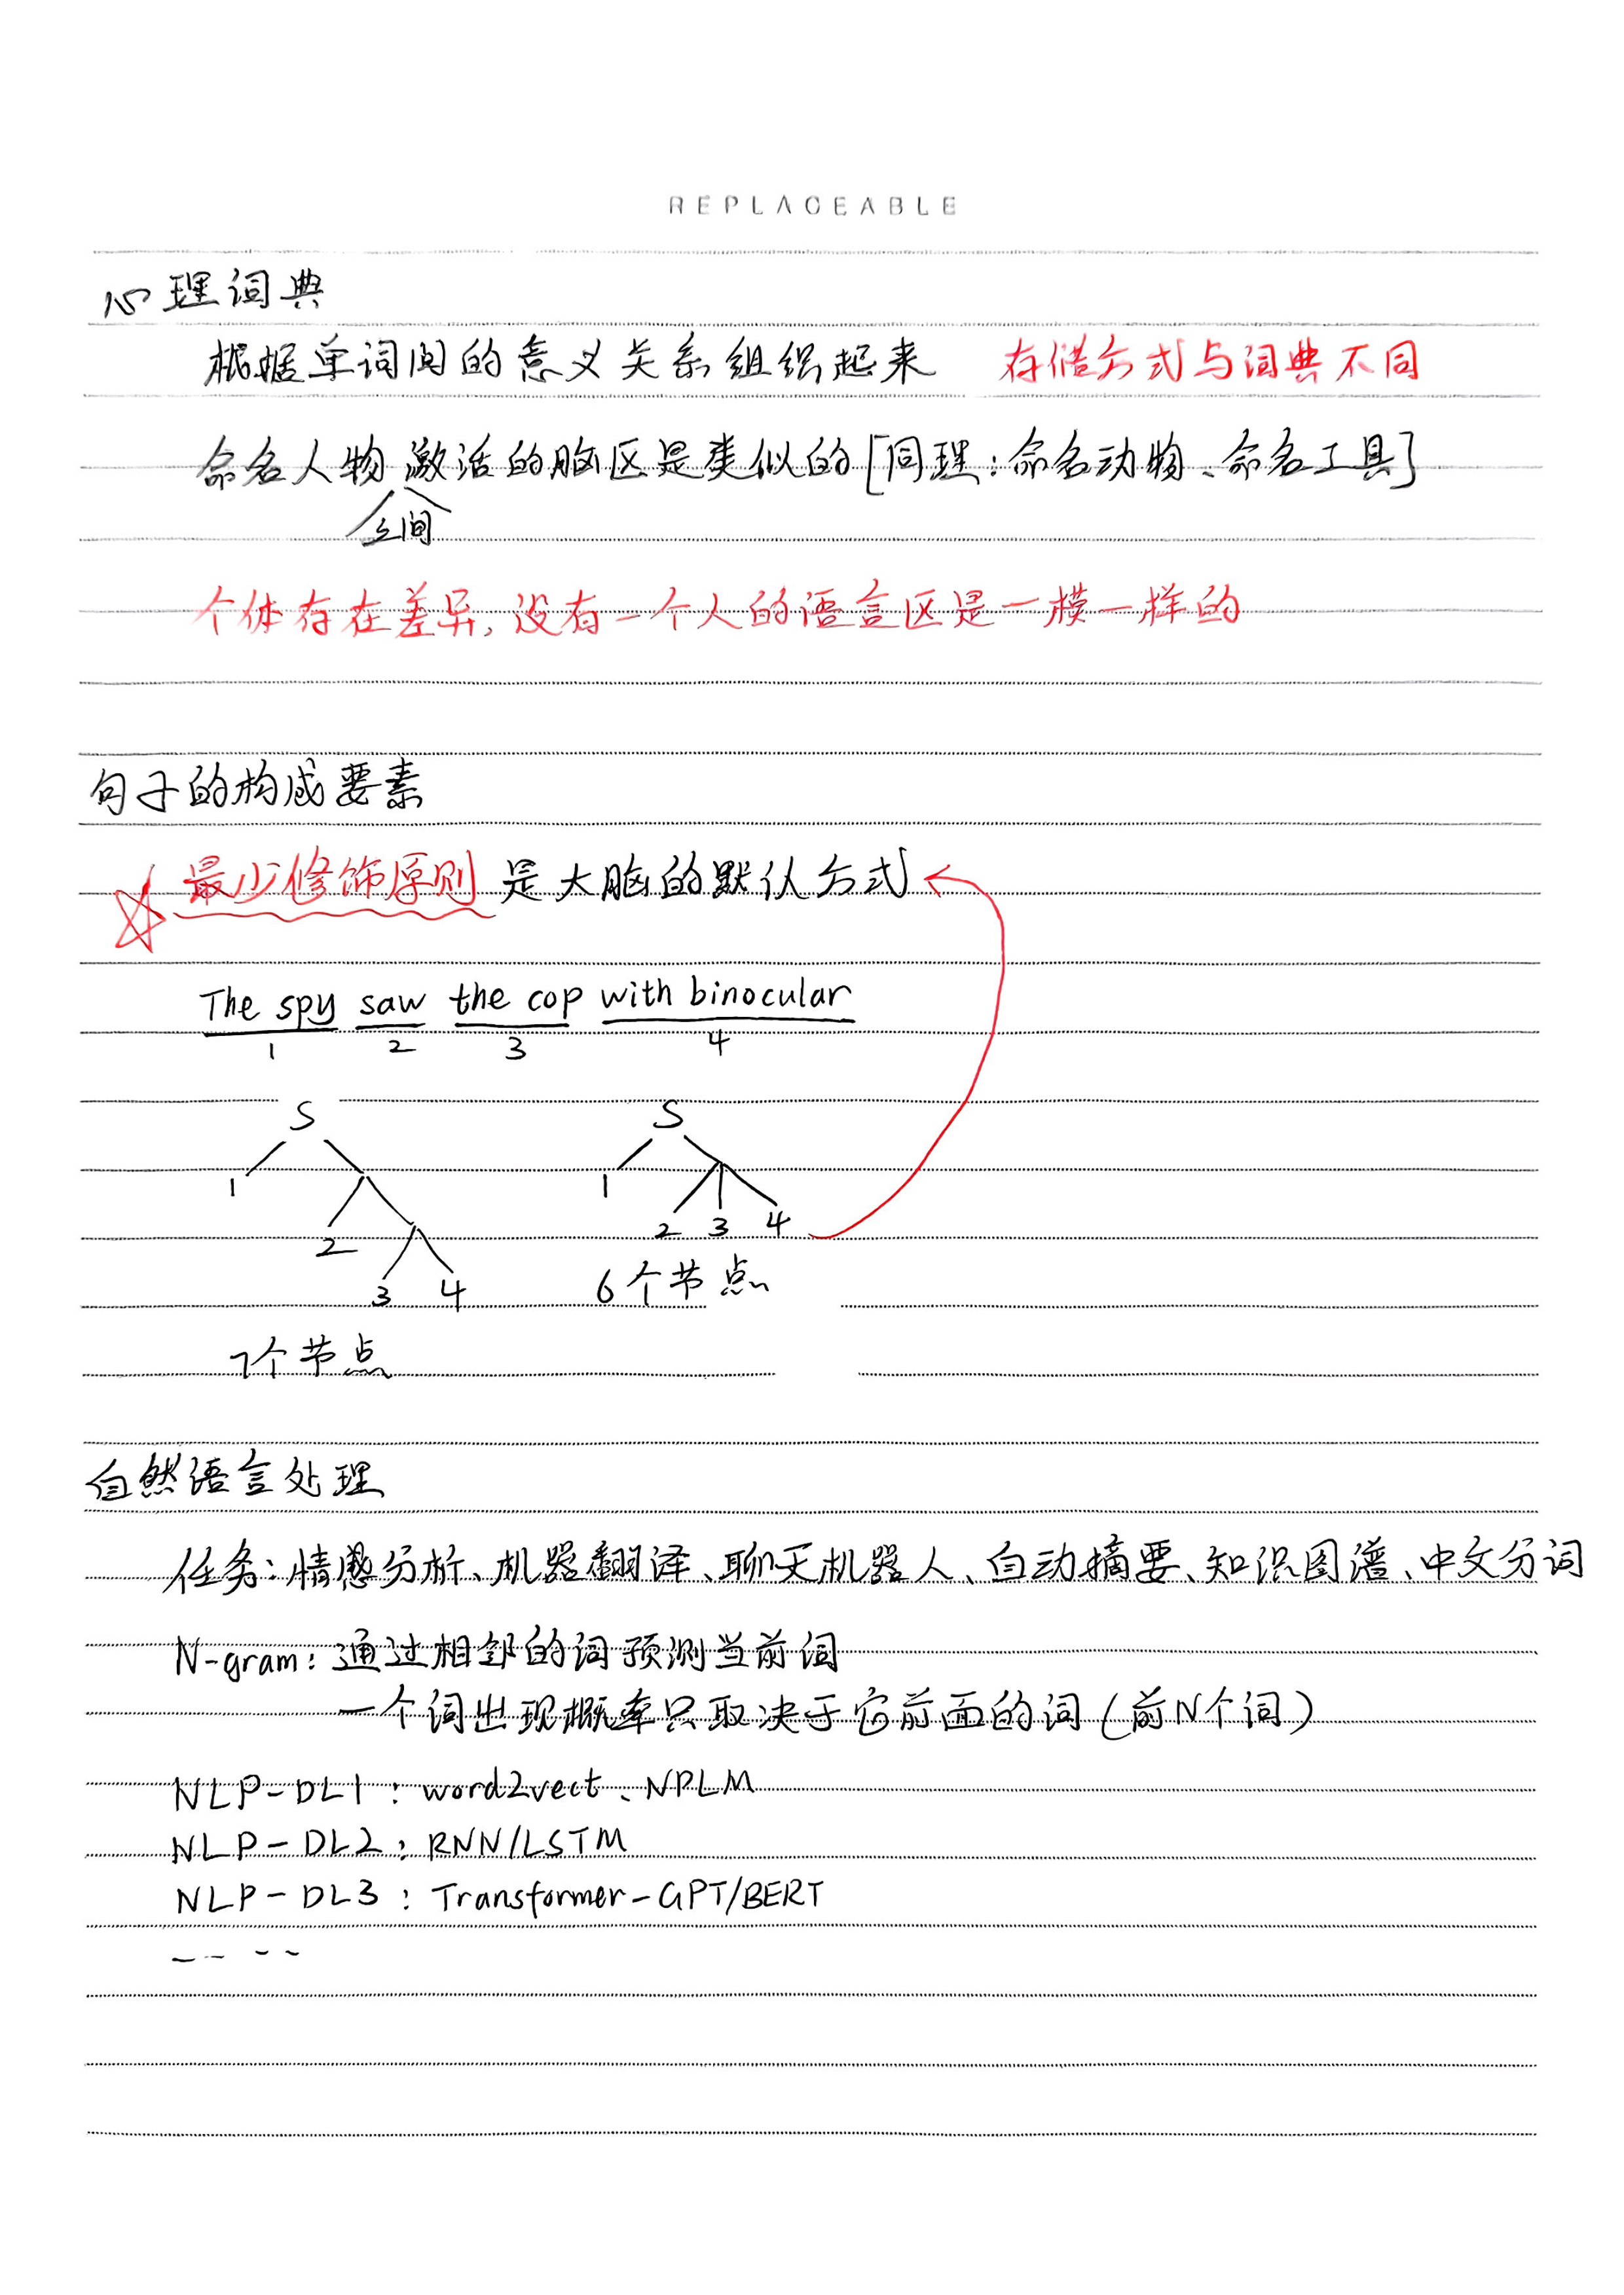 REPLACEABLE
心理词典
根据单词间的意义关系组织起来 存储方式与词典不同
命名人物激活的脑区是类似的[同理:命名动物、命名工具]
之间
个体存在差异,没有一个人的语言区是一模一样的
句子的构成要素
最少修饰原则是大脑的默认方式
The spy saw the cop with binocular
1 2 3 4
S S
1 1
2 2 3 4
3 4 6个节点
7个节点
自然语言处理
任务:情感分析、机器翻译、聊天机器人、自动摘要、知识图谱、中文分词
N-gram:通过相邻的词预测当前词
一个词出现概率只取决于它前面的词(前N个词)
NLP-DL1:word2vect、NPLM
NLP-DL2:RNN/LSTM
NLP-DL3:Transformer-GPT/BERT